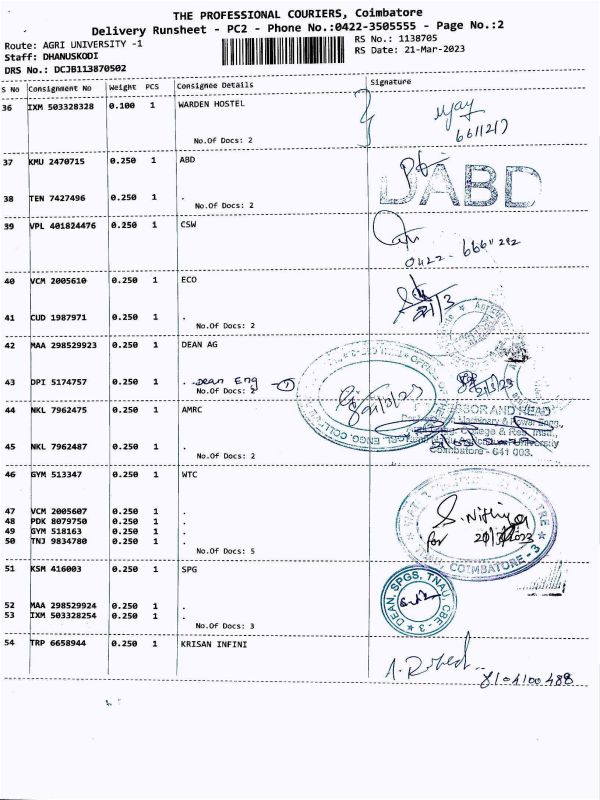 THE PROFESSIONAL COURIERS, Coimbatore
Delivery Runsheet - PC2 - Phone No.:0422-3505555 - Page No.:2
Route: AGRI UNIVERSITY -1
RS No.: 1138705
Staff: DHANUSKODI
RS Date: 21-Mar-2023
DRS No.: DCJB113870502
S No Consignment No Weight PCS Consignee Details Signature
36 IXM 503328328 0.100 1 WARDEN HOSTEL
No.Of Docs: 2
37 KMU 2470715 0.250 1 ABD
DABD
38 TEN 7427496 0.250 1 .
No.Of Docs: 2
39 VPL 401824476 0.250 1 CSW
No.Of Docs: 2
40 VCM 2005610 0.250 1 ECO
41 CUD 1987971 0.250 1 .
No.Of Docs: 2
42 MAA 298529923 0.250 1 DEAN AG
43 DPI 5174757 0.250 1 . Dean Eng - 1
No.Of Docs: 2
21/3/23
44 NKL 7962475 0.250 1 AMRC
AND HEAD
College & Res. Insti.,
University
Coimbatore - 641 003.
45 NKL 7962487 0.250 1 .
No.Of Docs: 2
46 GYM 513347 0.250 1 WTC
47 VCM 2005607 0.250 1 .
48 PDK 8079750 0.250 1 .
49 GYM 518163 0.250 1 .
50 TNJ 9834780 0.250 1 .
No.Of Docs: 5
S. Nithya
for 21/3/2023
COIMBATORE - 3
51 KSM 416003 0.250 1 SPG
52 MAA 298529924 0.250 1 .
53 IXM 503328254 0.250 1 .
No.Of Docs: 3
DEAN, SPGS, TNAU, CBE - 3
54 TRP 6658944 0.250 1 KRISAN INFINI